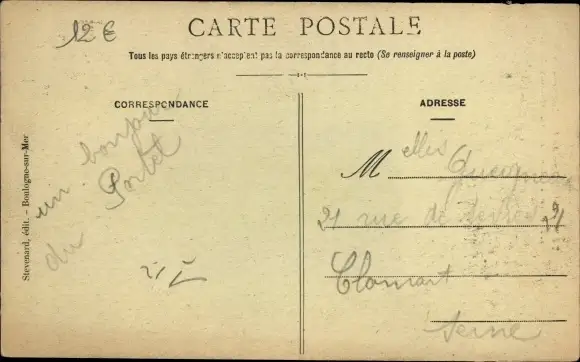 12 €
CARTE POSTALE
Tous les pays étrangers n'acceptent pas la correspondance au recto (Se renseigner à la poste)
CORRESPONDANCE
un bonjour
du Portel
Stevenard, édit. - Boulogne-sur-Mer
ADRESSE
Melles
21 rue de
Clamart
Seine